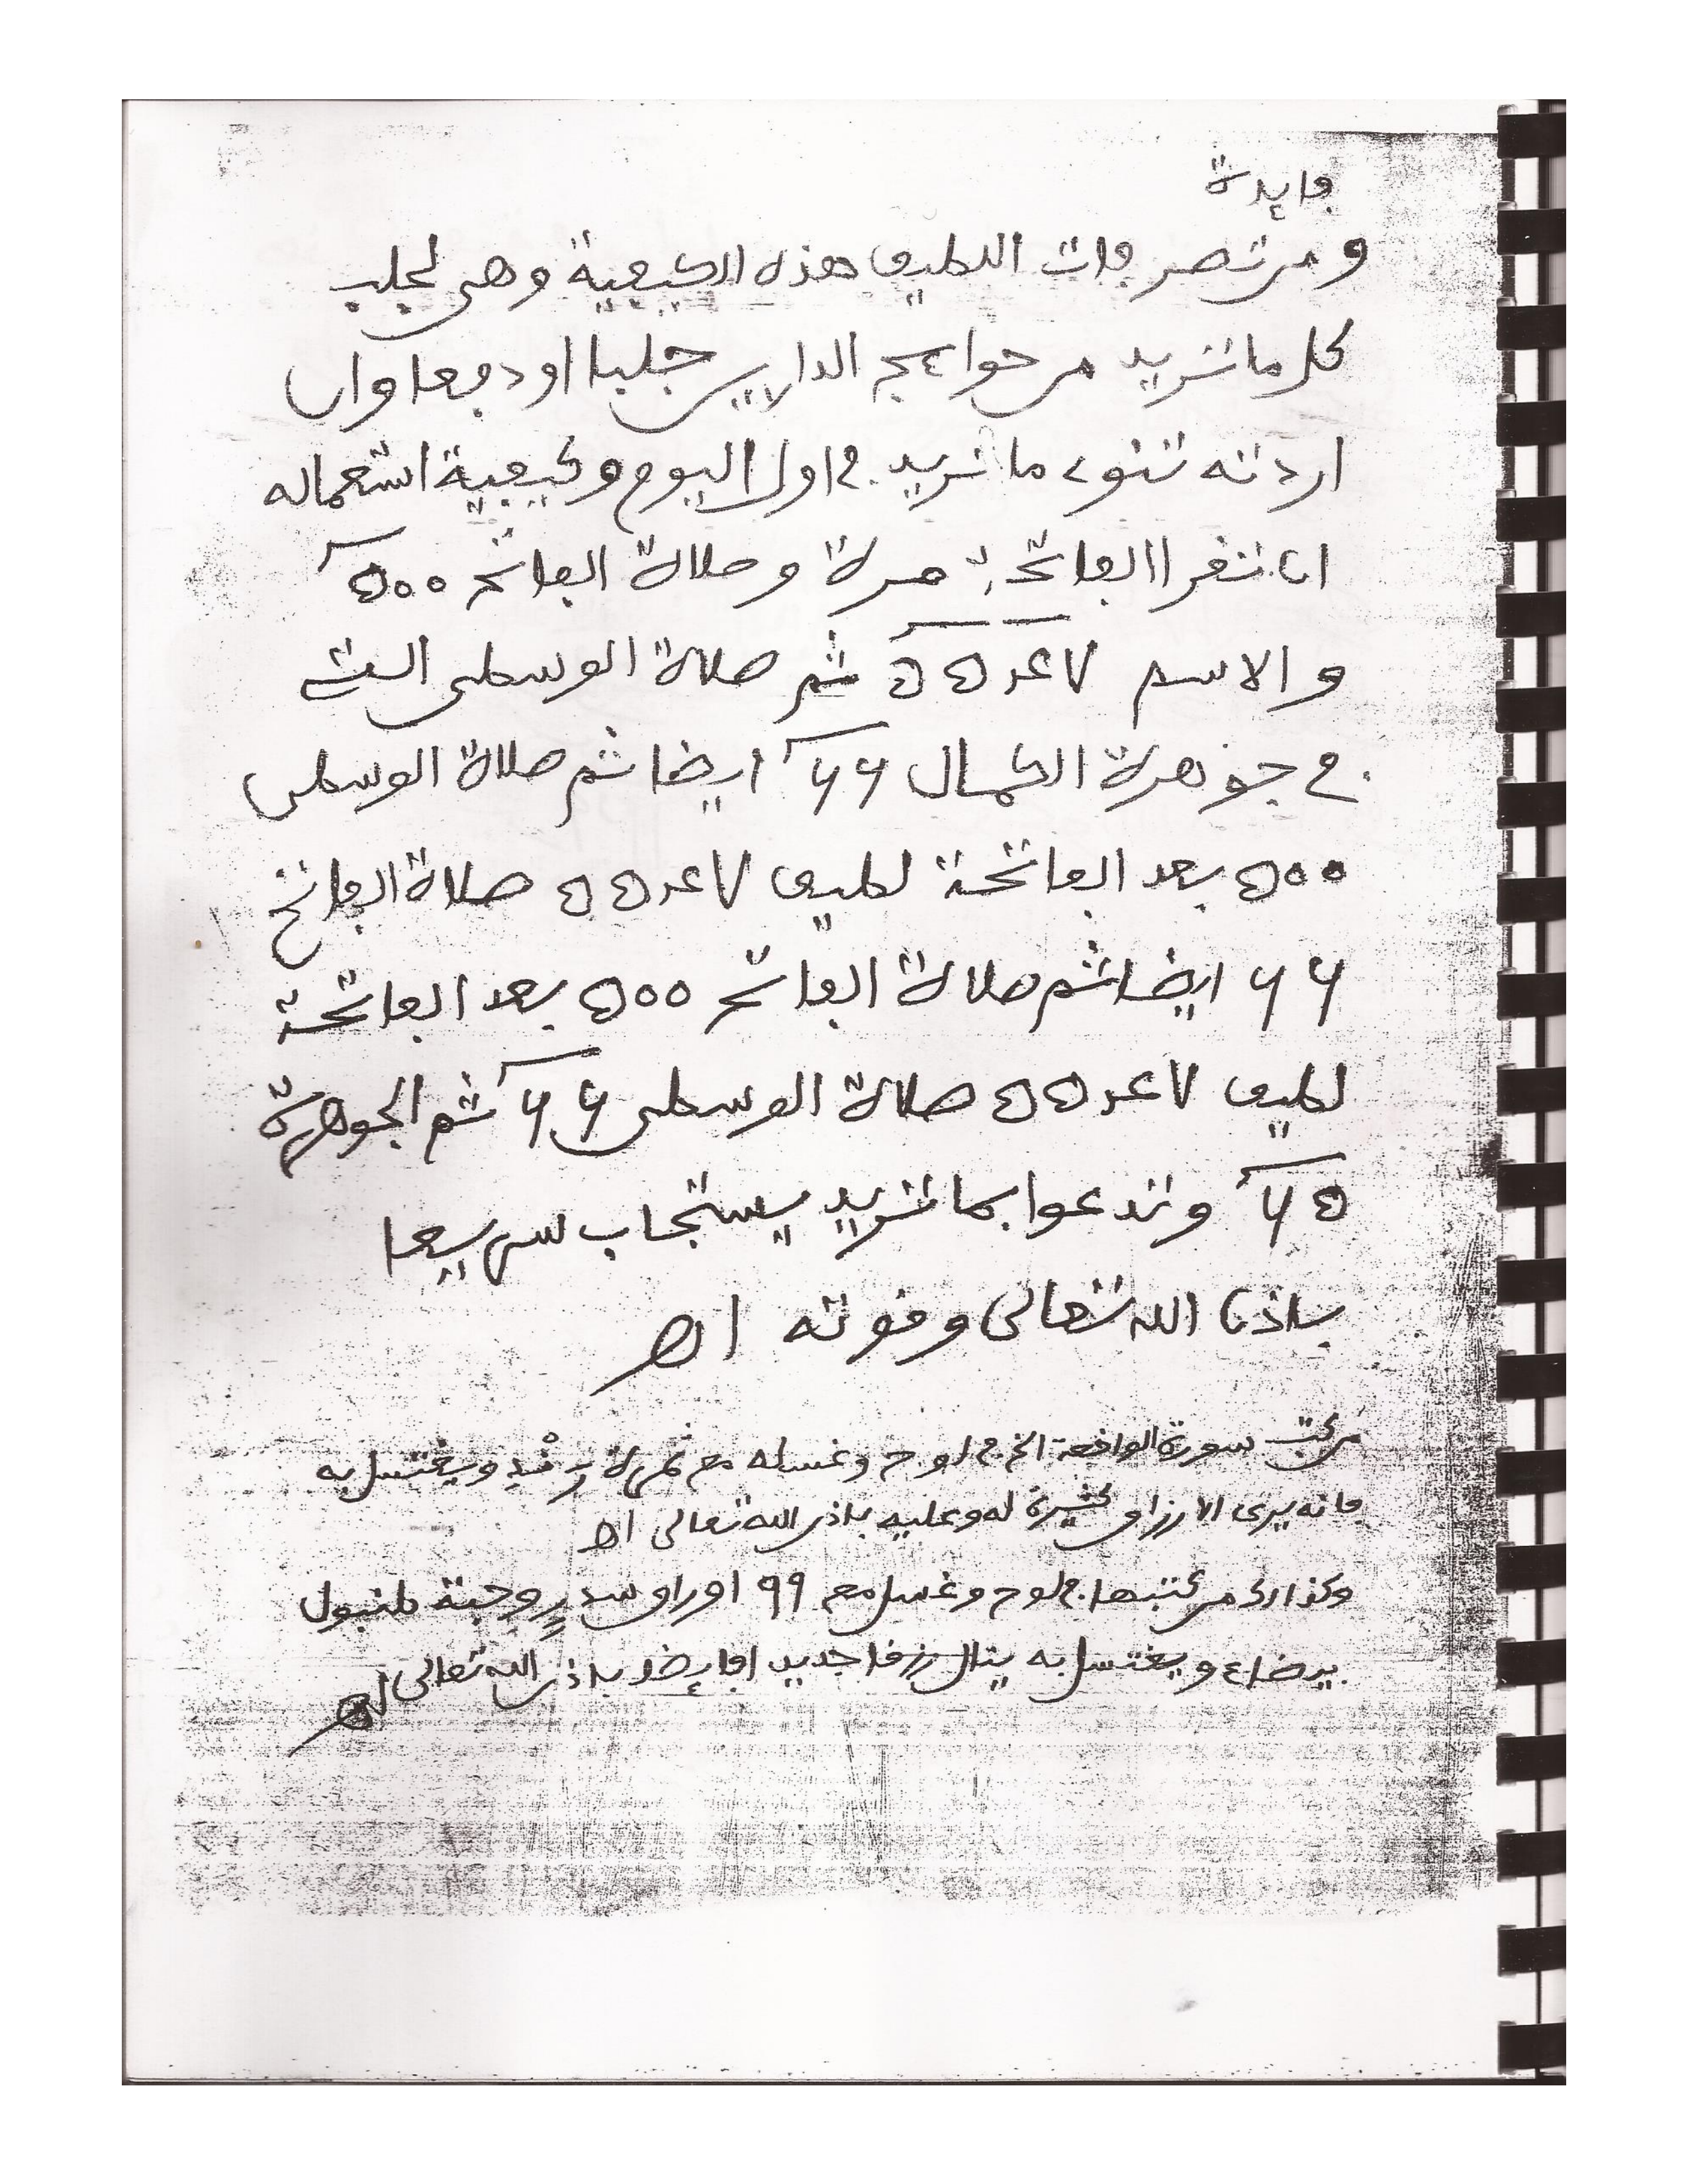 فايدة
ومن تصرفات اللطيف هذه الكيفية وهى لجلب
كل ما تريد من حوايج الدارين جلبا او دفعا وان
اردته تنوى ما تريد في اول اليوم وكيفية استعماله
ان تقرا الفاتحة مرة وصلاة الفاتح ٥٠٠
والاسم لاعدد ثم صلاة الوسطى التي
في جوهرة الكمال ٦٦ ايضا ثم صلاة الوسطى
٥٠٠ بعد الفاتحة لطيف صلاة الفاتح
٦٦ ايضا ثم صلاة الفاتح ٥٠٠ بعد الفاتحة
لطيف صلاة الوسطى ٦٦ ثم الجوهرة
٦٥ وتدعوا بما تريد يستجاب سريعا
باذن الله تعالى وقوته اهـ
من كتب سورة الواقعة الخ في لوح وغسله مع ويغتسل به
فانه يرى الارزاق كثيرة له وعليه باذن الله تعالى اهـ
وكذالك من كتبها في لوح وغسل مع ٩٩ اوراق سدر وحبة
ويغتسل به ينال رزقا جديد ايضا باذن الله تعالى اهـ